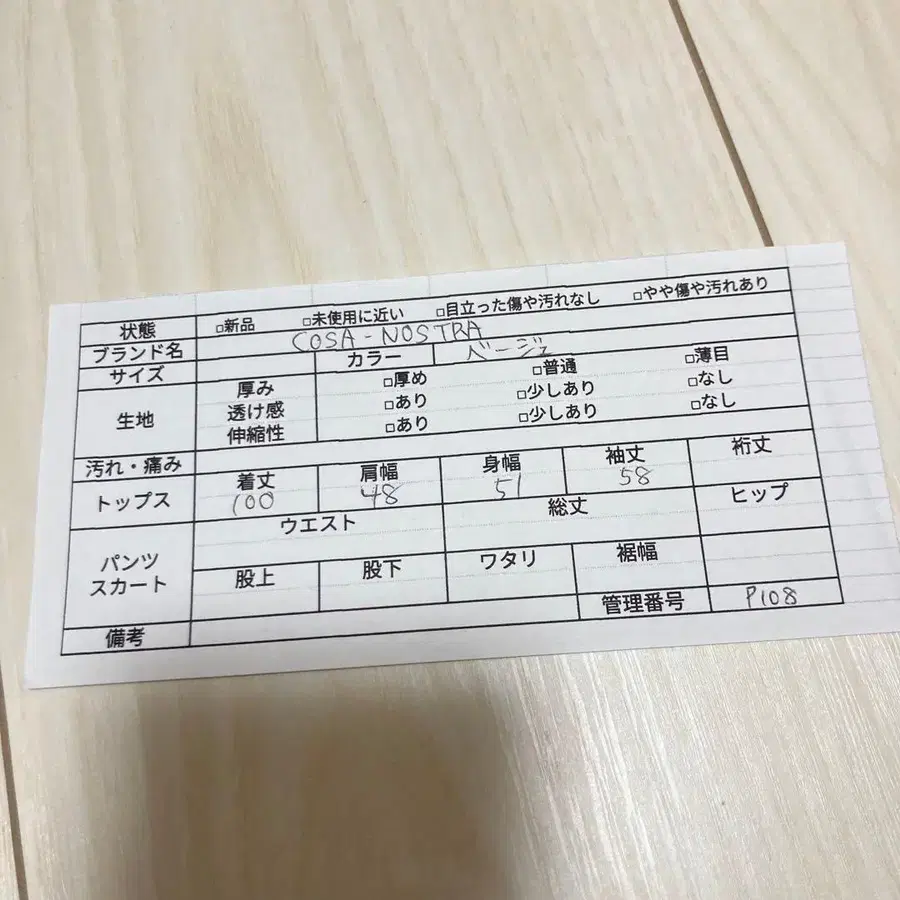 状態 □新品 □未使用に近い □目立った傷や汚れなし □やや傷や汚れあり
ブランド名 COSA-NOSTRA
サイズ カラー ベージュ
生地 厚み □厚め □普通 □薄目
透け感 □あり □少しあり □なし
伸縮性 □あり □少しあり □なし
汚れ・痛み
トップス 着丈 肩幅 身幅 袖丈 裄丈
100 48 51 58
パンツ スカート ウエスト 総丈 ヒップ
股上 股下 ワタリ 裾幅
管理番号 P108
備考